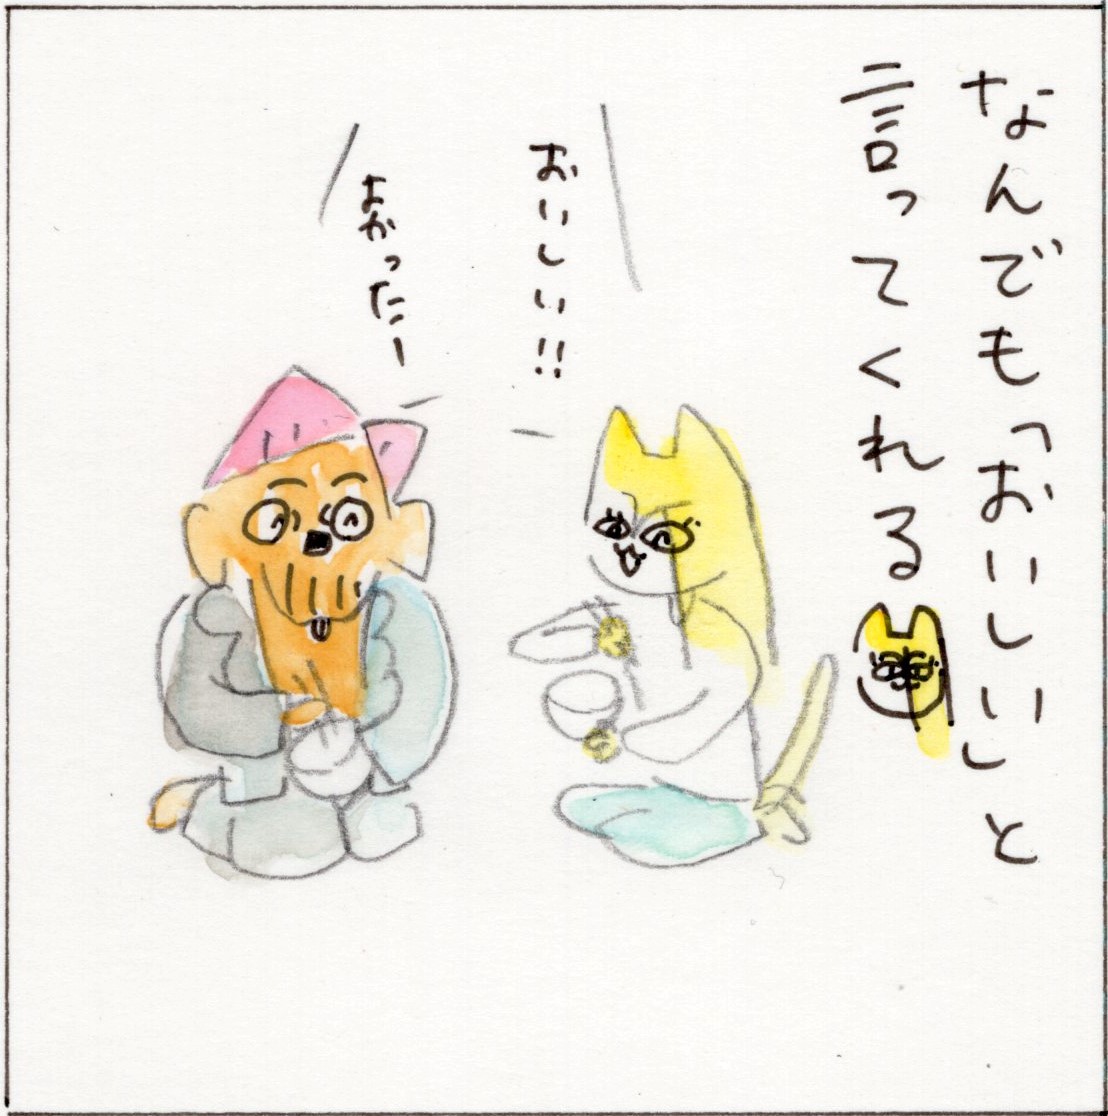 なんでも「おいしい」と
言ってくれる
おいしい!!
よかったー